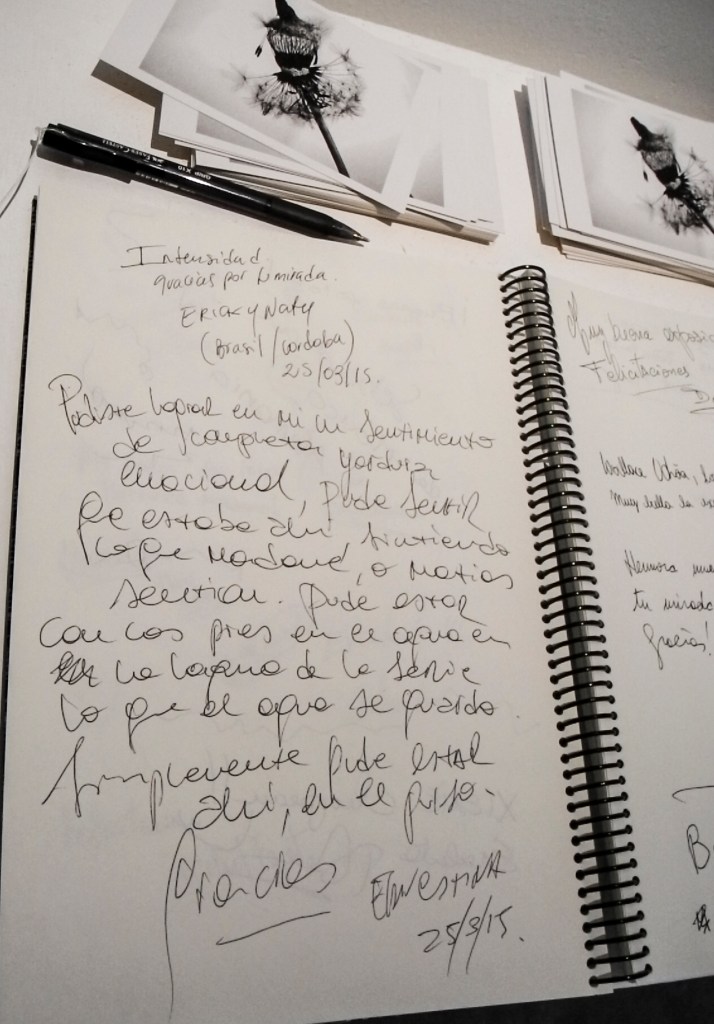 Intensidad
gracias por tu mirada.
ERICK y NATY
(Brasil/Cordoba)
25/03/15.
Pudiste lograr en mi un sentimiento
de completa
emocional, pude sentir
que estaba ahi, sintiendo
lo que Madame, o Matias
sentian. Pude estar
con los pies en el agua en
la laguna de la serie
lo que el agua se guardo.
Simplemente pude estar
ahi, en el
Gracias
ERNESTINA
25/3/15.
Muy buena
Felicitaciones
D.
muy bella la
Hermosa
tu mirada
gracias!
B